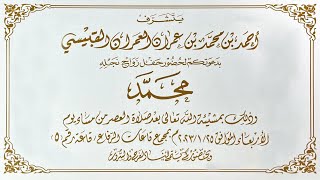 يتشرف
أحمد بن محمد بن عمران العمران القبيسي
بدعوتكم لحضور حفل زواج نجله
محمد
وذلك بمشيئة الله تعالى بعد صلاة العصر من مساء يوم
الأربعاء الموافق ٢٠٢٣/١/٢٥م بمجمع قاعات الرفاع (قاعة رقم ٥)